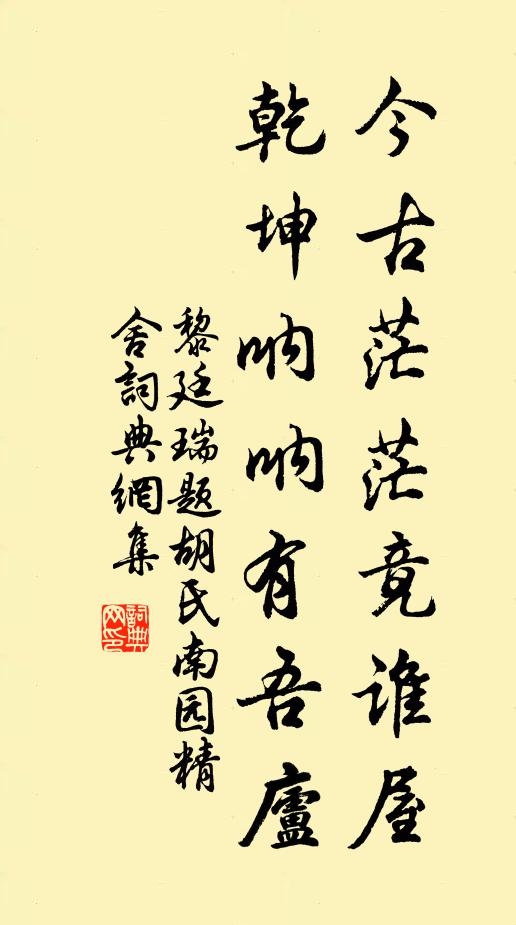 今古茫茫竟谁屋
乾坤呐呐有吾廬
黎廷瑞题胡氏南园精
舍詞典網集
詞典
网印